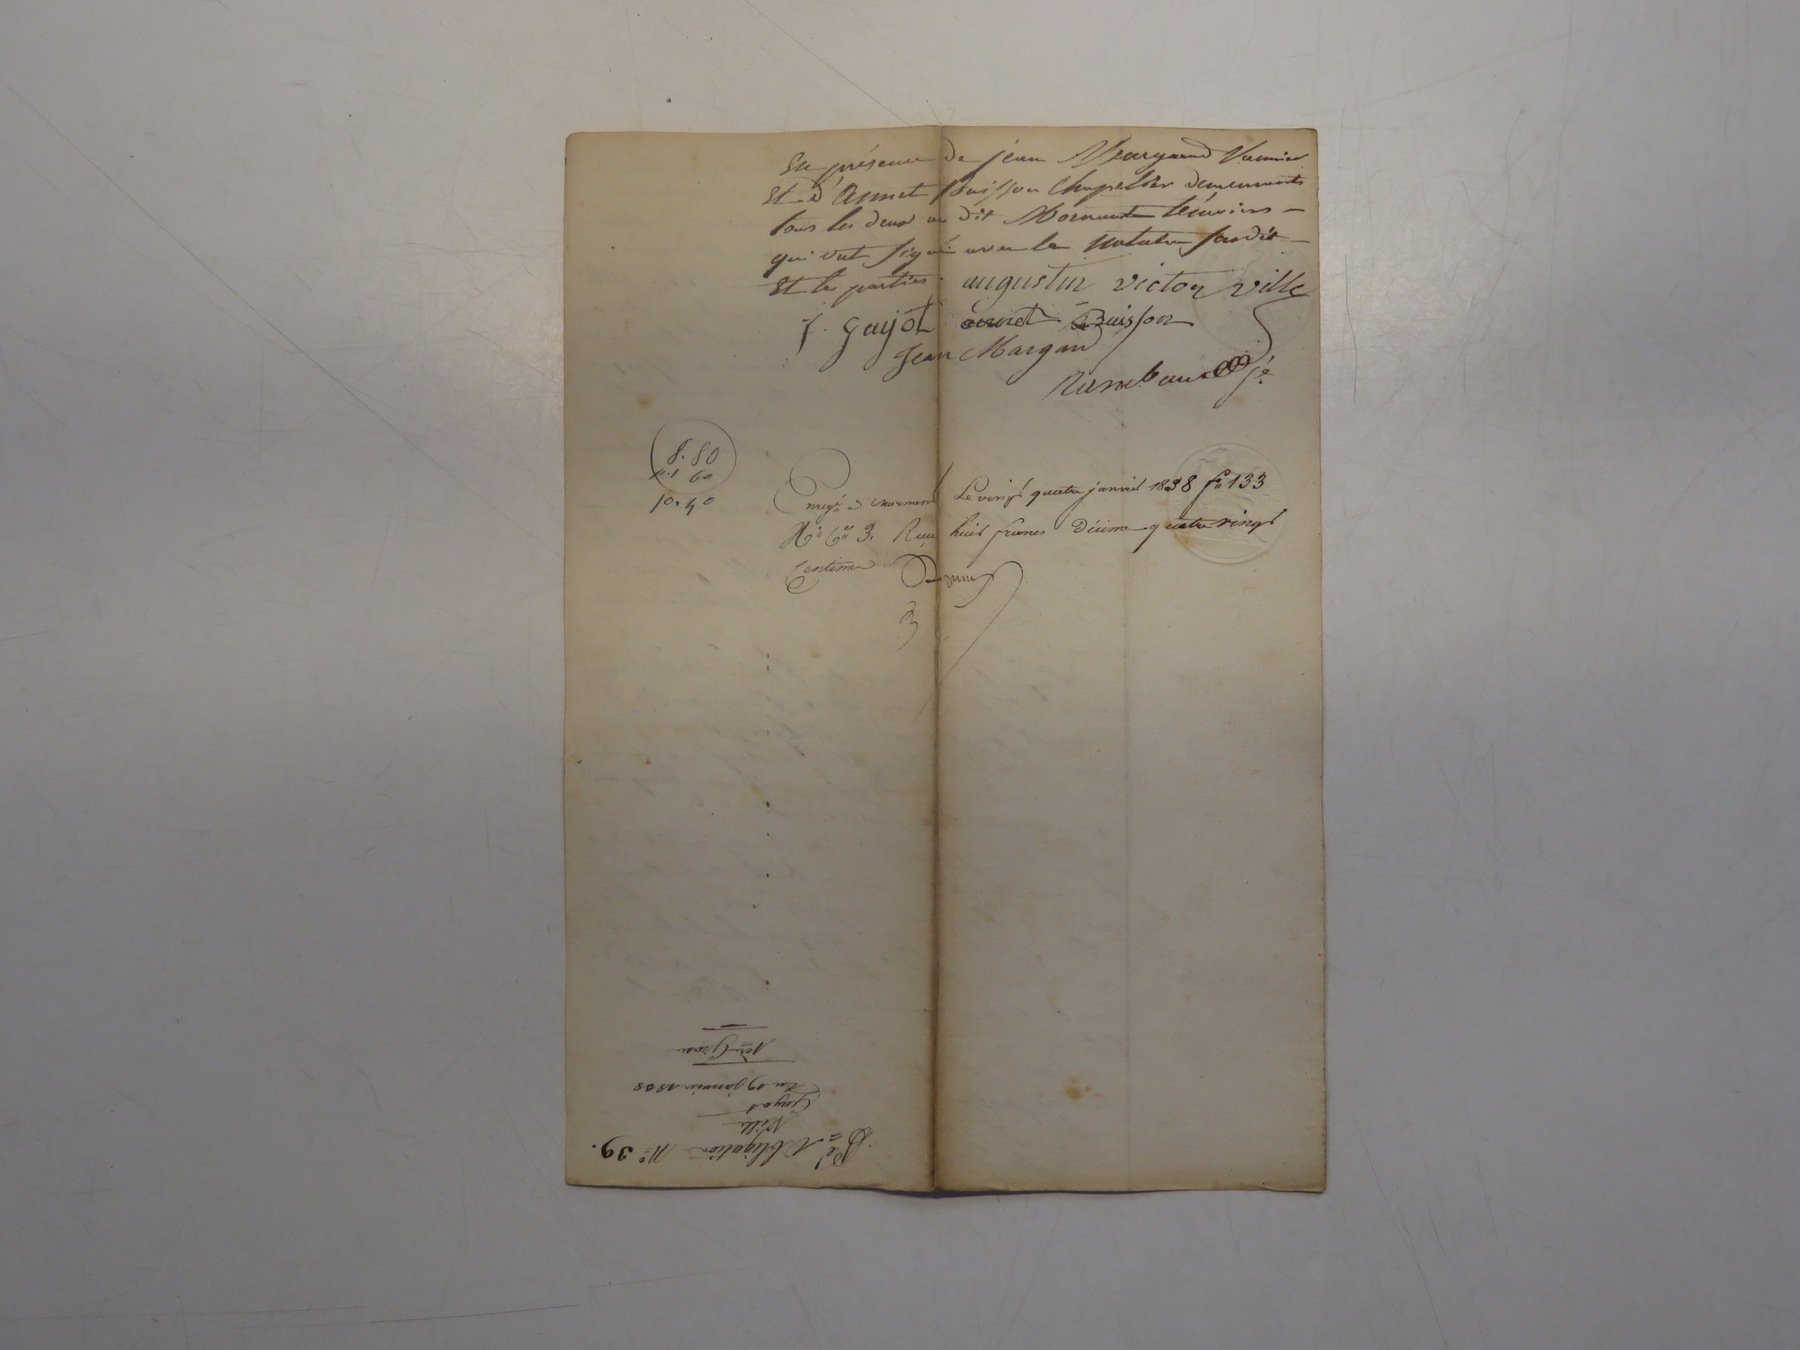 En présence de jean Meargand Vannier
Et d'Annet Buisson Chapelier demeurants
tous les deux au dit Mornant témoins -
qui ont signé avec le Notaire susdit -
Et les parties. augustin victor ville
f. guyot annet Buisson
Jean Margand
8. 80
1. 60
10. 40
Enregé à mornant Le vingt quatre janvier 1838 f° 133
R° C° 3. Reçu huit francs Décime quatre vingt
Centimes
3
Obligation N° 39.
Ville
Guyot
Du 19 janvier 1838
1ère Grosse